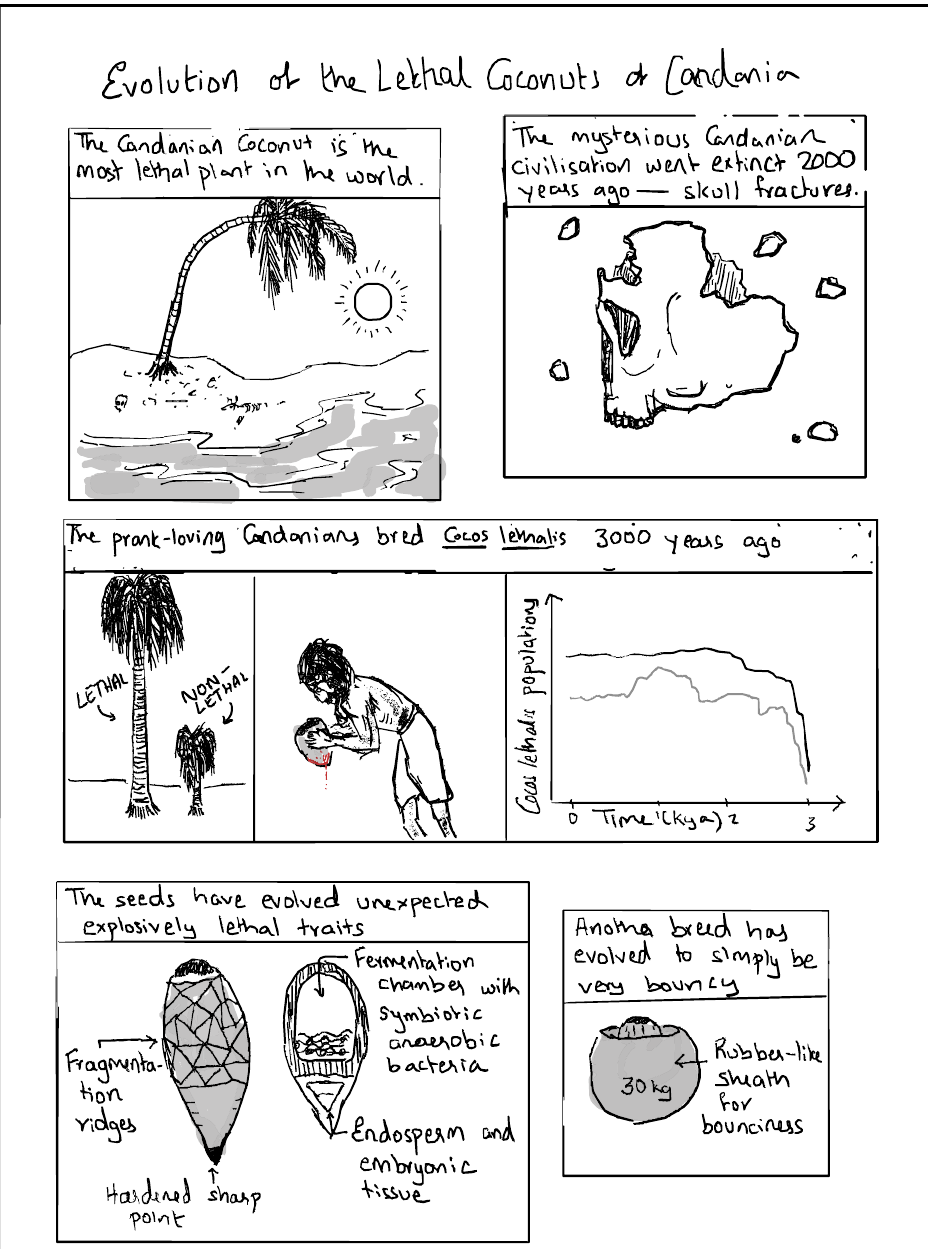 Evolution of the Lethal Coconuts of Candania
The Candanian Coconut is the
most lethal plant in the world.
The mysterious Candanian
civilisation went extinct 2000
years ago — skull fractures.
The prank-loving Candanians bred Cocos lethalis 3000 years ago
LETHAL
NON-
LETHAL
Cocos lethalis populations
0 Time (kya) 2 3
The seeds have evolved unexpected
explosively lethal traits
Fragmenta-
tion
ridges
Hardened sharp
point
Fermentation
chamber with
symbiotic
anaerobic
bacteria
Endosperm and
embryonic
tissue
Another breed has
evolved to simply be
very bouncy
30kg
Rubber-like
sheath
for
bounciness